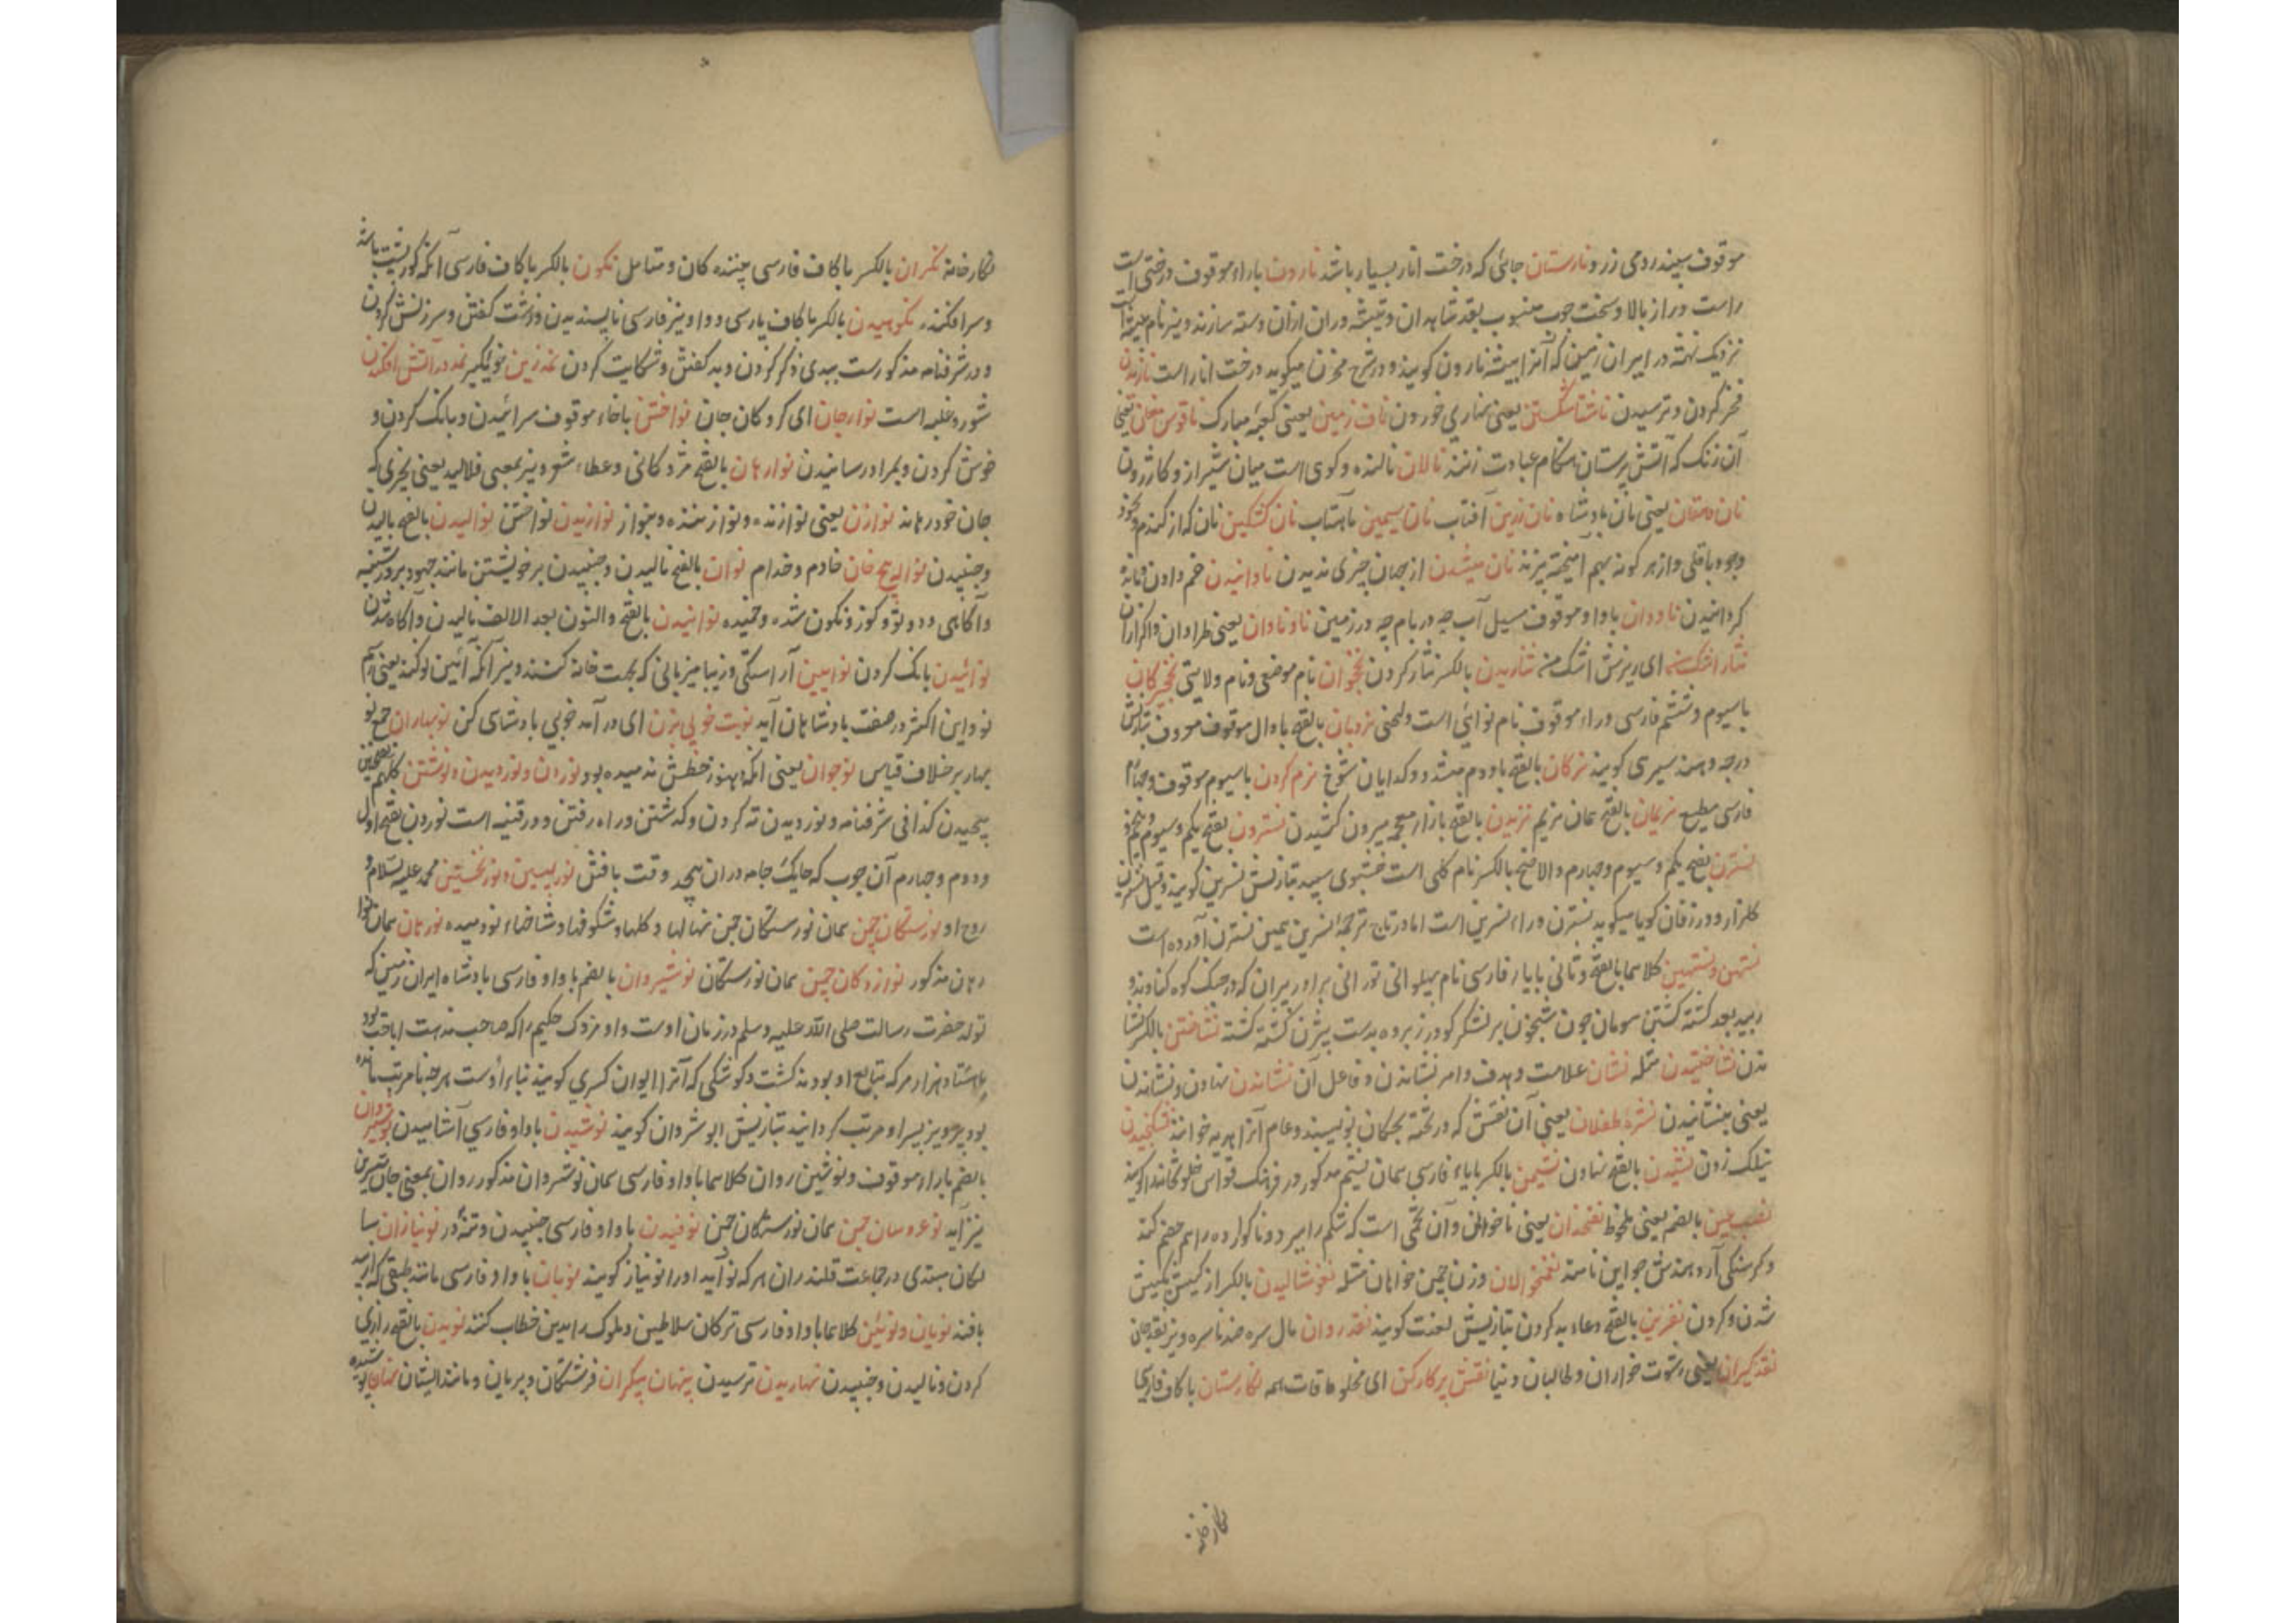 موقوف سپیدرومی زرو نارستان جائی که درخت انار بسیار باشد نارون باراء موقوف درختی است
راست دراز بالا و سخت چوب منسوب بقد شاهدان و تیشه وران ازان دسته سازند و نیز نام بیشه است
نزدیک تمیشه در ایران زمین که آنرا بیشه نارون گویند و در شرح مخزن میگوید درخت انار است نازیدن
فخر کردن و ترسیدن ناشتا شکستن یعنی نهاری خوردن ناف زمین یعنی کعبه مبارک ناقوس مغان یعنی
آن زنگ که آتش پرستان هنگام عبادت زنند نالان نالنده و کوی است میان شیراز و کازرون
نان دهقان یعنی نان بادشاه نان زرین آفتاب نان سیمین ماهتاب نان کشکین نان که از گندم و نخود
و جو و باقلی و از هر گونه بهم آمیخته پزند نان میشدن از جهان چیزی ندیدن ناوانیدن خم دادن و مانده
گردانیدن ناودان باواو موقوف مسیل آب چه در بام چه در زمین ناوناوان یعنی خرامان
نثار اشک ای ریزش اشک نثاریدن بالکسر نثار کردن نخجوان نام موضعی و نام ولایتی نخجیرکان
باسیوم و ششم فارسی و راء موقوف نام نوائی است و لحنی نردبان بالفتح بادال موقوف معروف بتازیش
درجه و هند سیری گویند نرکان بالفتح بادوم مشدد گدایان شوخ نرم کردن باسیوم موقوف و چهارم
فارسی مطیع نریمان بالفتح همان نریم نزیدن بالفتح بازاء معجمه بیرون کشیدن نسترون بفتح یکم و سیوم و پنجم
نسترن بفتح یکم و سیوم و چهارم والاصح بالکسر نام گلی است خشبوی سپید بتازیش نسرین گویند و قیل نسرین
گلزار و در زفان گویا میگوید نسترن وراء نسرین است اما در تاج ترجمه نسرین همین نسترن آورده است
نستهن و نستیهن کلاهما بالفتح و ثانی بایاء فارسی نام پهلوانی تورانی برادر پیران که در جنگ کوه کنابد
بعد کشته گشتن هومان چون شبخون بر لشکر گودرز برده بدست بیژن کشته گشته نشاختن بالکسر
نشاختیدن مثله نشان علامت و هدف و امر نشاندن و فاعل آن نشاندن نهادن و نشاندن
یعنی بنشانیدن نشره طفلان یعنی آن نقش که در تخته بچگان نویسند و عام آنرا هدیه خوانند نشکنجیدن
نیلک زدن نشیدن بالفتح نهادن نشیمن بالکسر بایاء فارسی همان نشیم مذکور در فرهنگ قواس
نصب عین بالضم یعنی ملحوظ نغنخوان یعنی ناخواه و آن تخمی است که شکم را ببرد و ناگوارده را هم هضم کند
و گرسنگی آرد هندش جواین نامند نغنخوالان وزن چمن خواهان مثله نغوشالیدن بالکسر از کیش بکیش
شدن و کردن نفرین بالفتح دعاء بد کردن بتازیش لعنت گویند نقد روان مال سره ضد ناسره و نیز نقد جان
نقدگیران یعنی رشوت خواران و طالبان دنیا نقش پرکار کن ای مخلوقات همه نگارستان باکاف فارسی
نگارخانه
نگارخانه نگران بالکسر باکاف فارسی بیننده کان و متامل نگون بالکسر باکاف فارسی آنکه کوزپشت باشد
و سرافکنده نکوهیدن بالکسر باکاف پارسی و واو نیز فارسی ناپسندیدن و زشت گفتن و سرزنش کردن
و در شرفنامه مذکورست ببدی ذکر کردن و بد گفتن و شکایت کردن نمدزین خوگیر نمد در آتش افکندن
شور و غلبه است نوارجان ای گروگان جان نواختن باخاء موقوف سرائیدن و بانگ کردن و
خوش کردن و بمراد رسانیدن نوارهان بالفتح مژدگانی و عطاء شعر و نیز بمعنی
جان خود رهاند نوازن یعنی نوازنده و نوازننده و بنواز نوازیدن نواختن نوالیدن بالفتح بالیدن
و جنبیدن نوالپیچ خان خادم و خدام نوان بالفتح نالیدن و جنبیدن برخویشتن مانند جهود بر در
و آگاهی و دوتو و کوز و نگون شده و خمیده نوانیدن بالفتح والنون بعد الالف نالیدن و آگاه شدن
نوائیدن بانگ کردن نوایین آراستگی و زیبا میزبانی که بجهت خانه کنند و نیز آنکه آئین نو کند یعنی رسم
نو و این اکثر در صفت بادشاهان آید نوبت خوبی بزن ای در آمد خوبی بادشاهی کن نوبهاران جمع نو
بهار بر خلاف قیاس نوجوان یعنی آنکه هنوز خطش ندمیده بود نوردن و نوردیدن و نوشتن کلهم بفتحتین
پیچیدن کذا فی شرفنامه و نوردیدن ته کردن و گذشتن و راه رفتن و در قنیه است نوردن بفتح اول
و دوم و چهارم آن چوب که حایک جامه دران پیچد وقت بافتن نور پیشین و نور نخستین محمد علیه السلام و
روح او نورستگان چمن همان نورستگان چمن نهالها و گلها و شکوفها و شاخهاء نودمیده نورهان همان نوا
رهان مذکور نوزادگان چمن همان نورستگان نوشیروان بالضم باواو فارسی بادشاه ایران زمین که
تولد حضرت رسالت صلی الله علیه وسلم در زمان اوست و او مزدک حکیم را که صاحب مذهب اباحت بود
باهشتاد هزار مرد که تابع او بودند کشت و کوشکی که آنرا ایوان کسری گویند بناء اوست هرچه نامرتب مانده
بود پرویز پسر او مرتب گردانید بتازیش ابوشروان گویند نوشیدن باواو فارسی آشامیدن نوشیروان
بالضم باراء موقوف و نوشین روان کلاهما باواو فارسی همان نوشروان مذکور روان بمعنی جان شیرین
نیز آید نوعروسان چمن همان نورستگان چمن نوفیدن باواو فارسی جنبیدن و تندر نونیازان
لکان مبتدی در جماعت قلندران هر که نو آید او را نونیاز گویند نویان باواو فارسی مانند طبقی که از بید
بافند نویان و نوئین کلاهما باواو فارسی ترکان سلاطین و ملوک را بدین خطاب کنند نویدن بالفتح زاری
کردن و نالیدن و جنبیدن نهاریدن ترسیدن پنهان پیکران فرشتگان و پریان و مانند ایشان